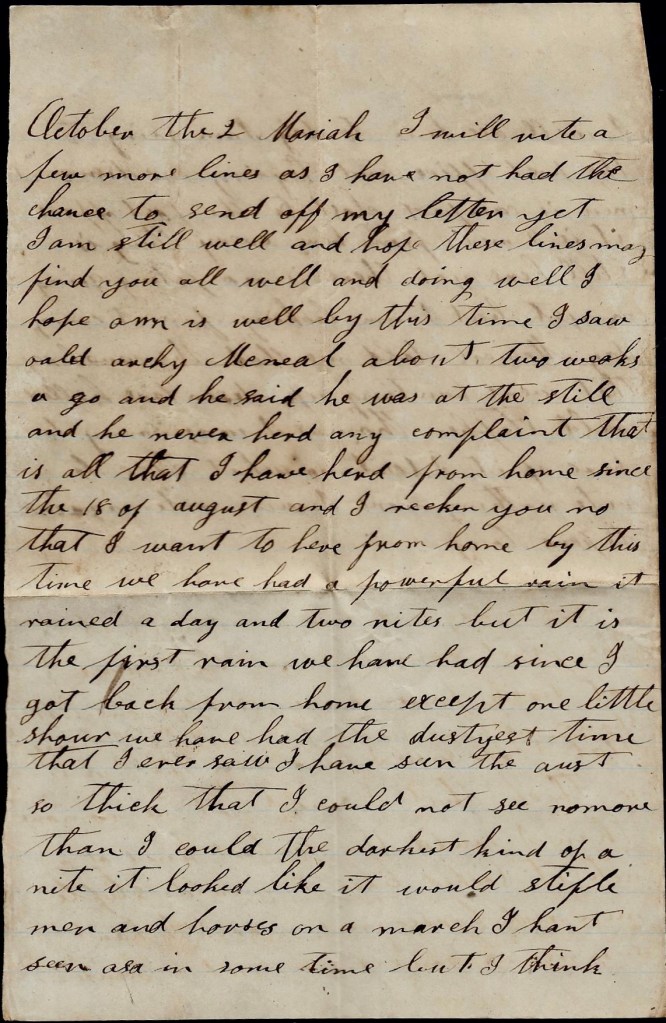 October the 2 Mariah I will rite a
few more lines as I have not had the
chance to send off my letter yet
I am still well and hope these lines may
find you all well and doing well I
hope ann is well by this time I saw
oald archy Mcneal about two weaks
a go and he said he was at the still
and he never herd any complaint that
is all that I have herd from home since
the 18 of august and I recken you no
that I want to here from home by this
time we have had a powerful rain it
rained a day and two nites but it is
the first rain we have had since I
got back from home except one little
shour we have had the dustyest time
that I ever saw I have seen the dust
so thick that I could not see nomore
than I could the darkest kind of a
nite it looked like it would stifle
men and horses on a march I hant
seen asa in some time but I think